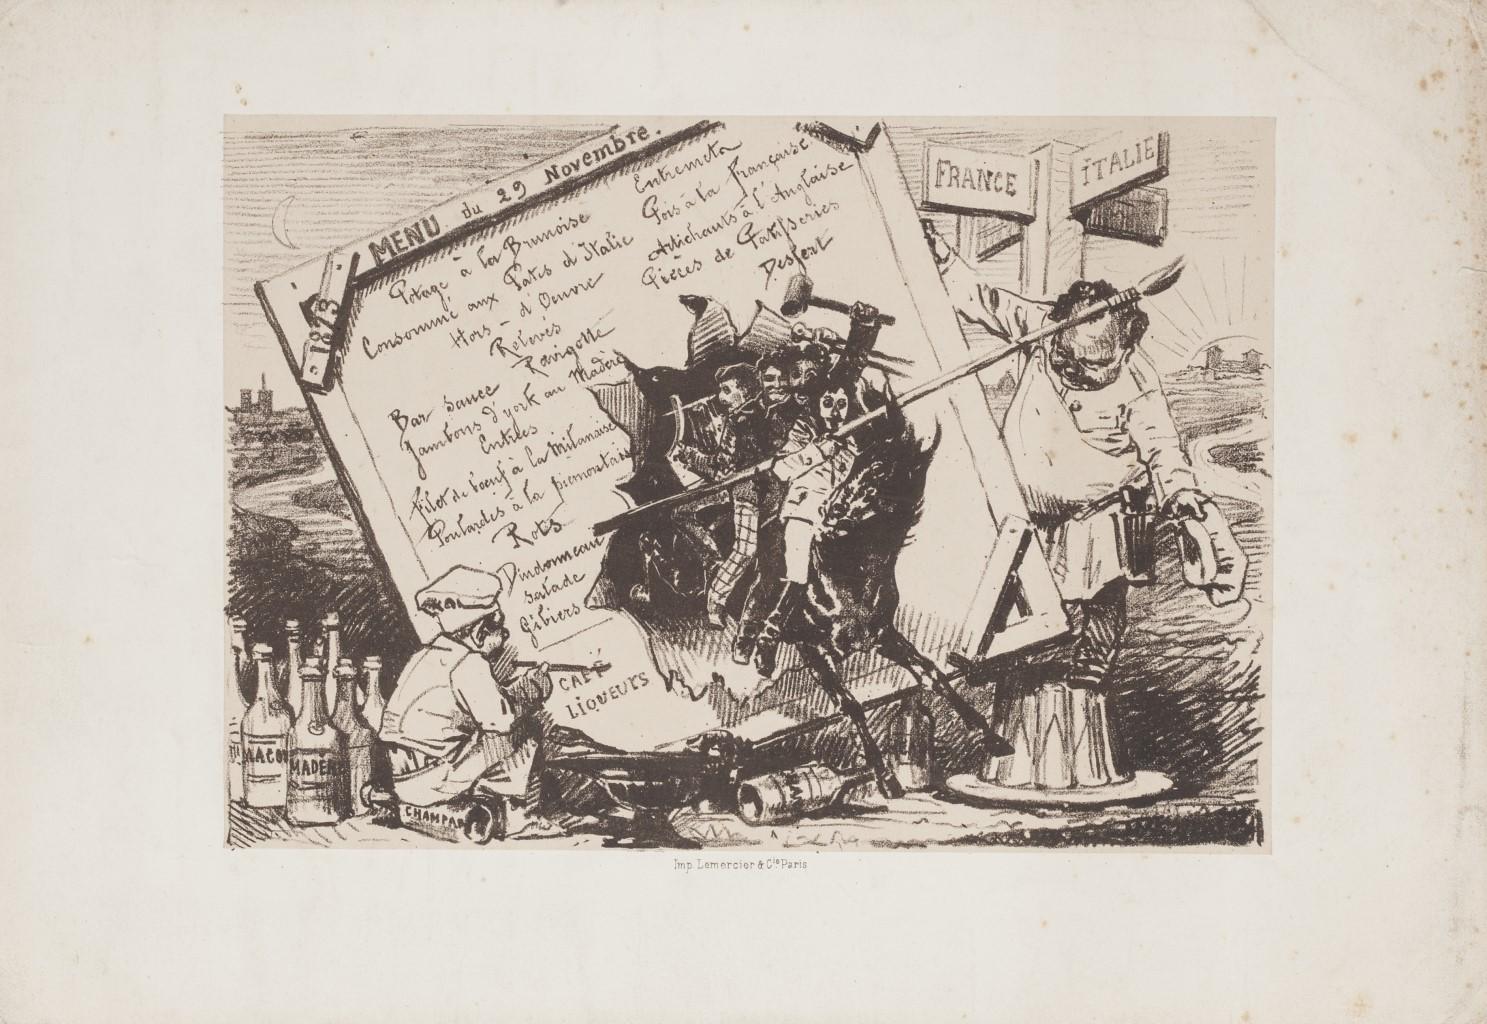 MENU du 29 Novembre.
1873
Potage à la Brunoise
Consommé aux Pates d'Italie
Hors-d'Oeuvre
Relevés
Bar sauce Ravigotte
Jambons d'york au Madère
Entrées
Filet de boeuf à la Milanaise
Poulardes à la piemontais
Rots
Dindonneau
salade
Gibiers
Entremets
Pois à la française
Artichauts à l'Anglaise
Pièces de Patisseries
Dessert
CAFÉ
LIQUEURS
FRANCE
ITALIE
MACO
MADER
CHAMPAG
Imp. Lemercier & Cie Paris